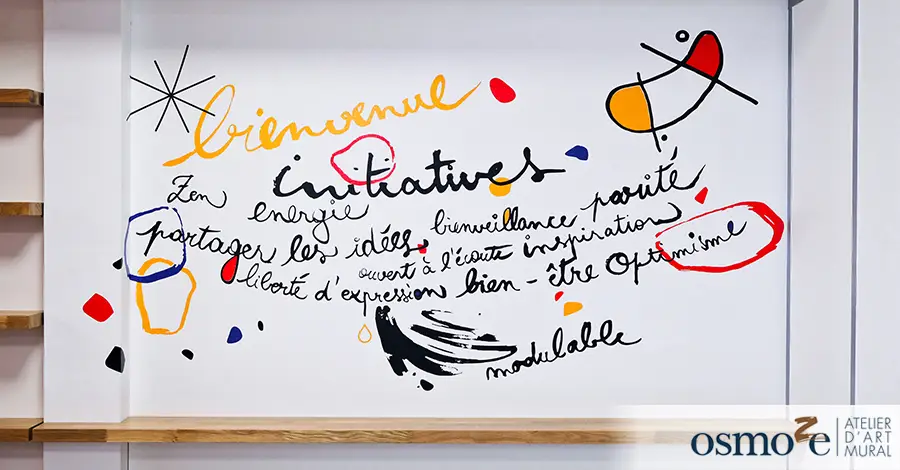 bienvenue
initiatives
Zen energie bienveillance parité
partager les idées ouvert à l'écoute inspiration
liberté d'expression bien-être Optimisme
modulable
osmoze
ATELIER
D'ART
MURAL